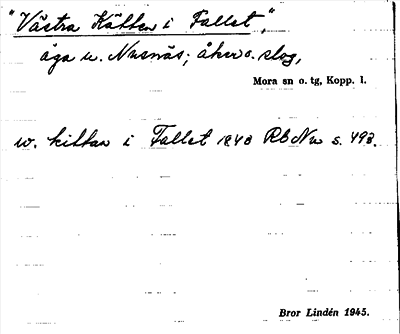 "Västra Kätten i Fallet",
äga u. Nusnäs; åker o. slog,
Mora sn o. tg, Kopp. l.
w. kittan i Fallet 1848 Rb Nu s. 493.
Bror Lindén 1945.